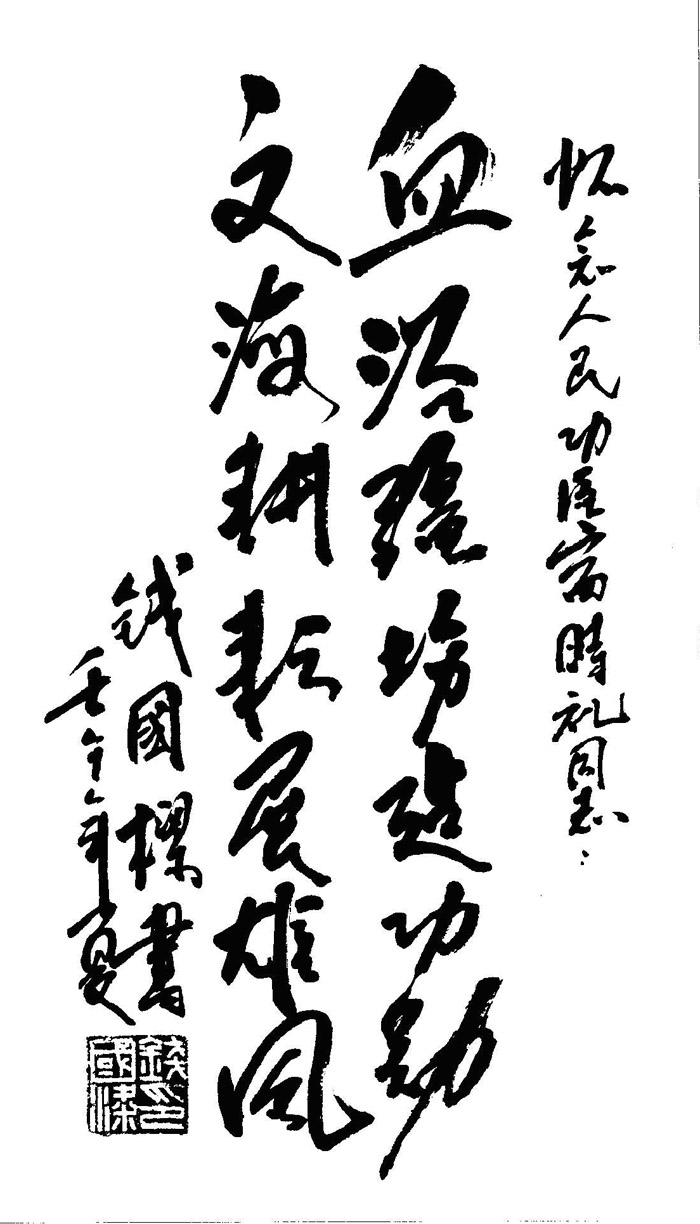 怀念人民功臣富時礼同志：
血浴疆场建功勋
文海耕耘展雄风
钱國樑書
壬午年夏
錢印國梁